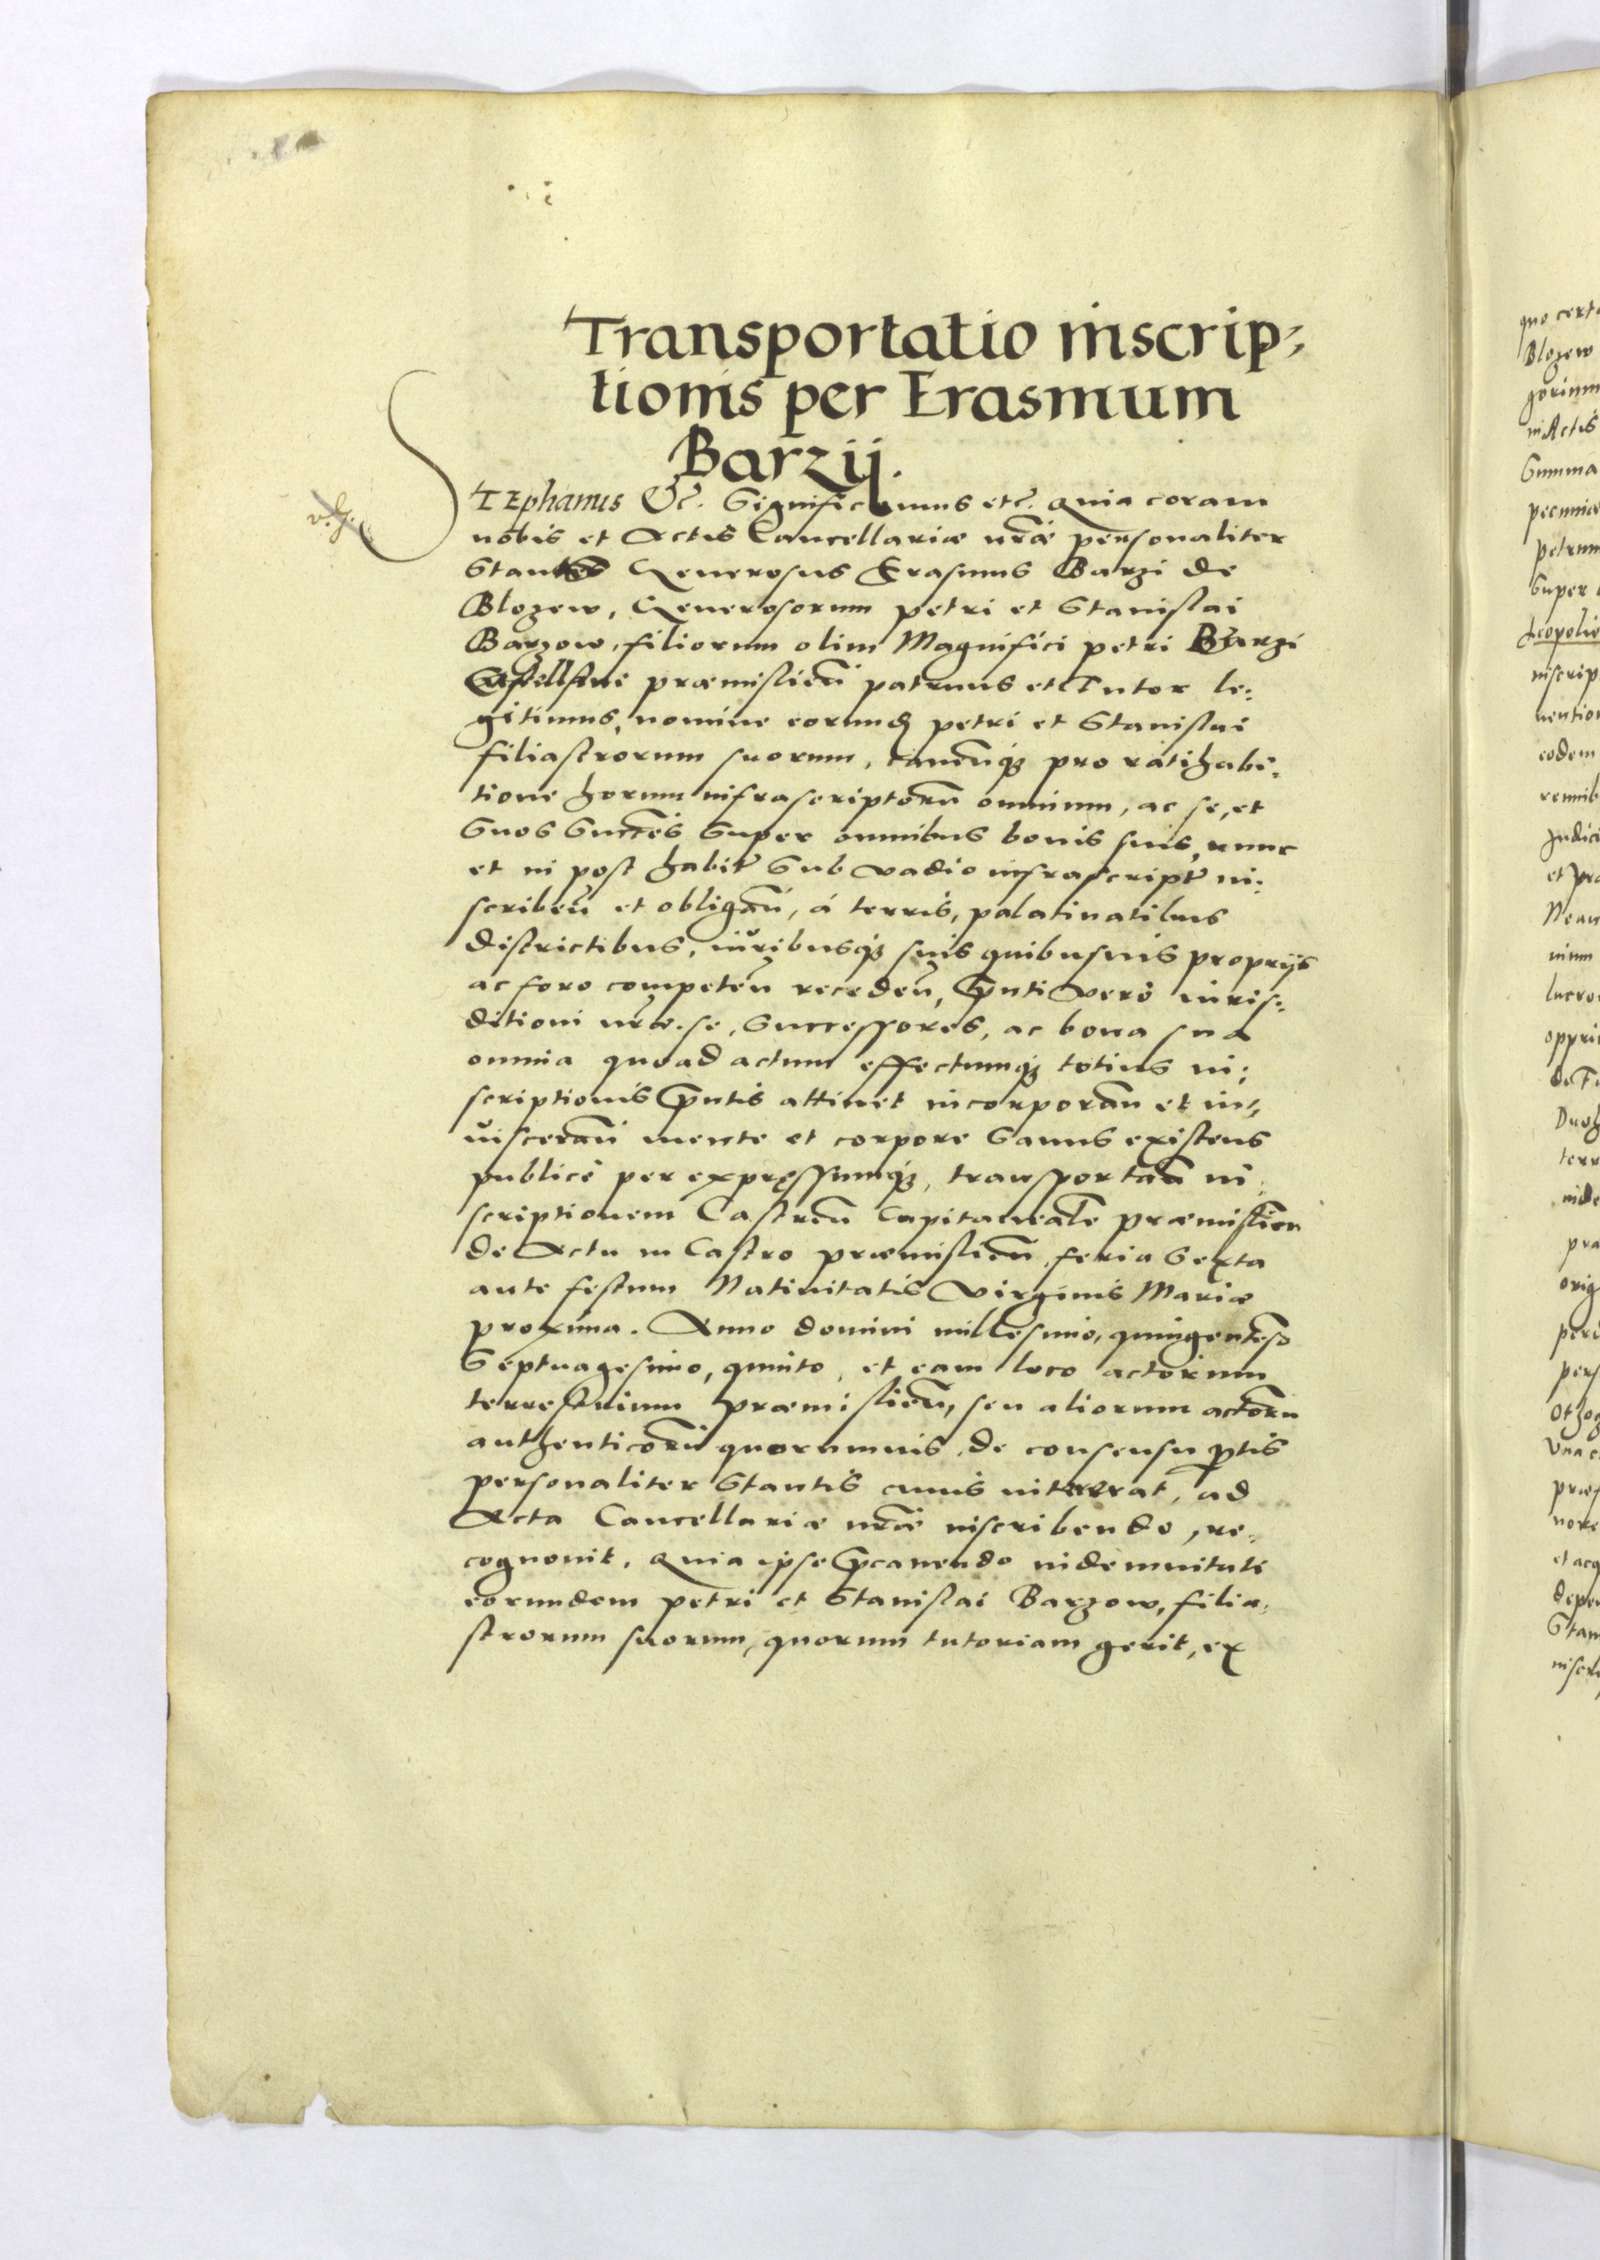 Transportatio inscrip-
tionis per Erasmum
Barzij.
STEphanus &c. Significamus etc. Quia coram
nobis et Actis Cancellariæ nr̃æ personaliter
Stans Generosus Erasmus Barzi de
Blozew, Generosorum petri et Stanislai
Barzow, filiorum olim Magnifici petri Barzi
Castellani præmislieñ patruus et Tutor le-
gitimus, nomine eorundȝ petri et Stanislai
filiastrorum suorum, caueñqȝ pro ratihabi-
tione horum infrascriptorũ omnium, ac se, et
Suos Succes̃ Super omnibus bonis suis, nunc
et in post habit̃ Sub vadio infrascript̃ in-
scribeñ et obligañ, á terris, palatinatibus
districtibus, iuribusqȝ suis quibusuis proprijs
ac foro competeñ recedeñ, p̃nti verò iuris-
ditioni nr̃æ. se, Successores, ac bona sua
omnia quoad actum effectumqȝ totius in-
scriptionis p̃ntis attinet incorporañ et in-
uiscerañ mente et corpore Sanus existens
publicè per expręssumqȝ, transportañ in-
scriptionem Castreñ Capitanealẽ præmislien
de Actu in Castro præmislieñ, feria Sexta
ante festum Natiuitatis Virginis Mariæ
proxima. Anno domini millesimo, quingentes̃o
Septuagesimo, quinto, et eam loco actorum
terrestrium præmislieñ, seu aliorum actorũ
authenticorũ quorumuis, de consensu p̃tis
personaliter Stantis cuius intererat, ad
Acta Cancellariæ nr̃æ inscribendo, re-
cognouit, Quia ipse p̃cauendo indemnitati
eorundem petri et Stanislai Barzow, filia-
strorum suorum, quorum tutoriam gerit, ex
quo cert
Blozew
in Actis
Summa
pecuniæ
petrum
Super
inscrip
eodem